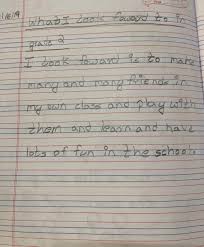 What I look foward to in
grade 2
I look foward is to make
many and many friends in
my own class and play with
them and learn and have
lots of fun in the school.